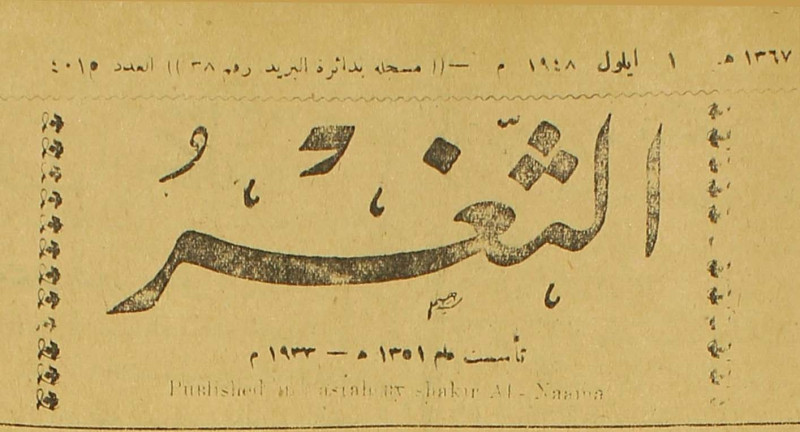 ١٣٦٧ هـ ١ ايلول ١٩٤٨ م —(( مسجله بدائرة البريد رقم ٣٨ )) العدد ٤٠١٥
الثَّغْرُ
تأسست عام ١٣٥١ ه — ١٩٣٣ م
Published by Shakir Al-Naama